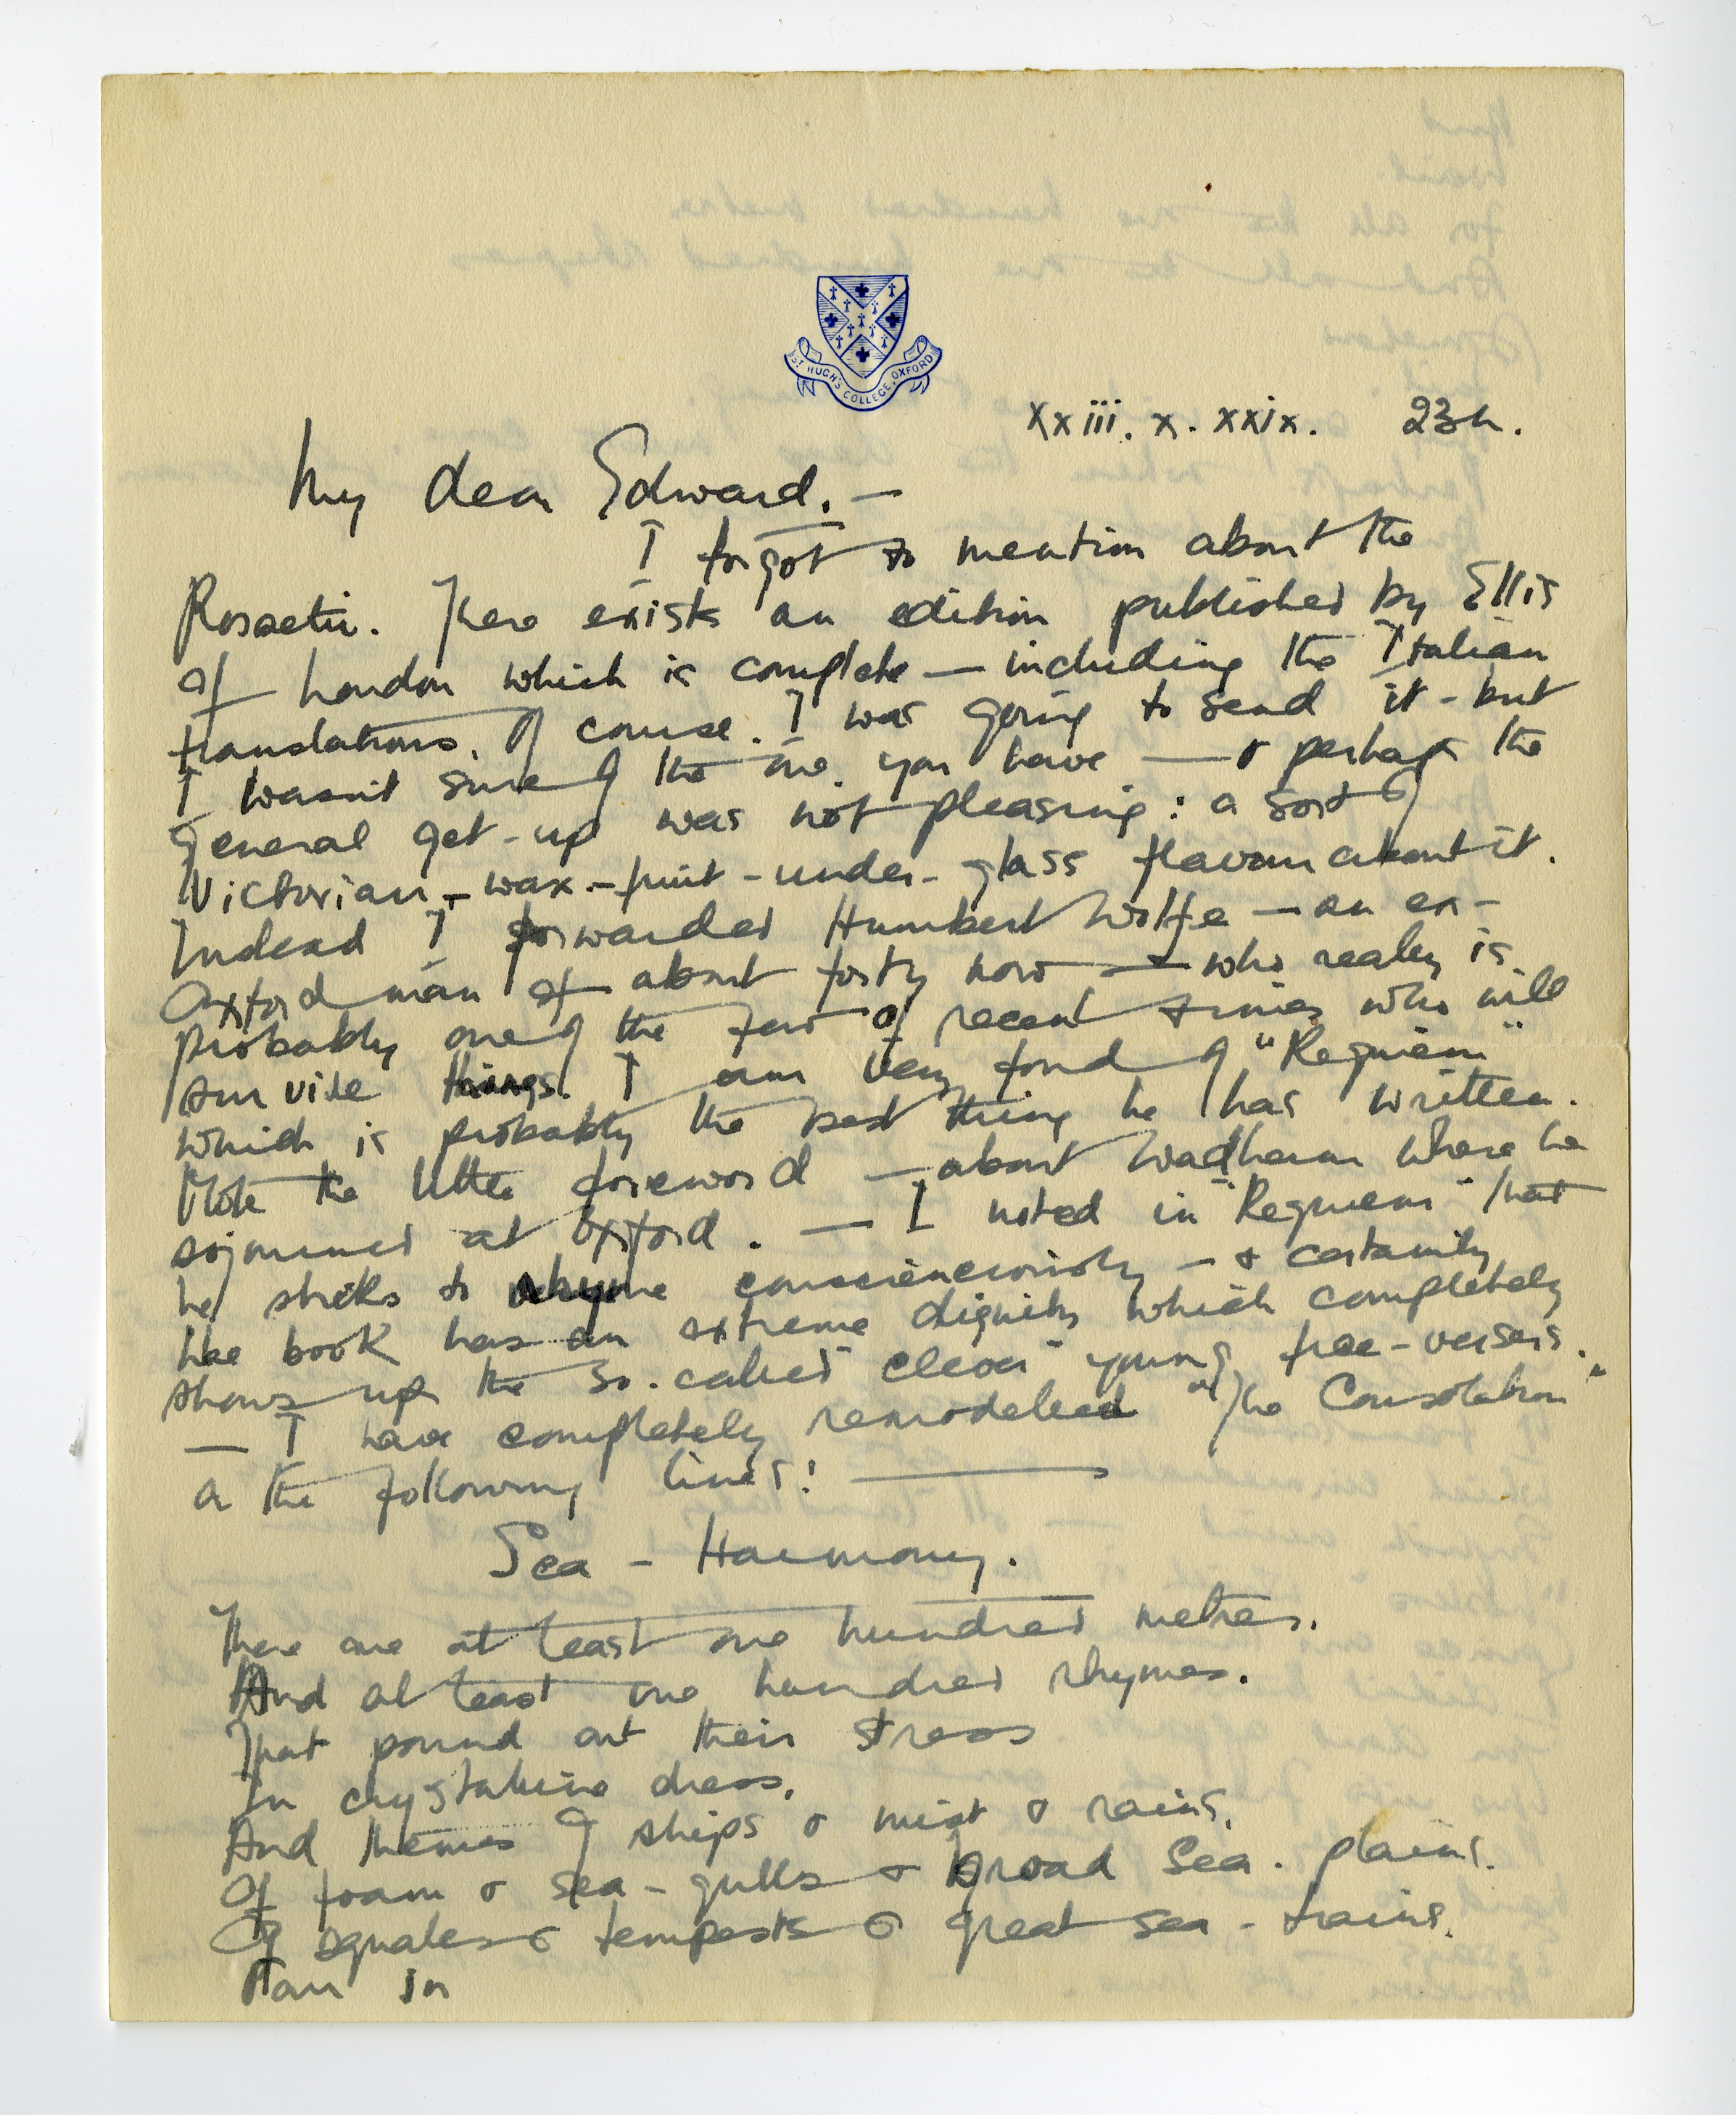 ST HUGH'S COLLEGE, OXFORD
xxiii. x. xxix. 23h.
My dear Edward. —
I forgot to mention about the
Rossetti. There exists an edition published by Ellis
of London which is complete — including the Italian
translations. Of course. I was going to send it - but
I wasn't sure of the one you have — & perhaps the
general get-up was not pleasing: a sort of
Victorian-wax-fruit-under-glass flavour about it.
Indeed I forwarded Humbert Wolfe — an ex-
Oxford man of about forty now — who really is
probably one of the few of recent times who will
survive things. I am very fond of "Requiem"
which is probably the best thing he has written.
Note the little foreword — about Wadham where he
sojourned at Oxford. — I noted in "Requiem" that
he sticks to rhyme conscienciously — & certainly
the book has an extreme dignity which completely
shows up the so-called "clever" young free-versers.
— I have completely remodelled "The Consolation"
in the following lines: —
Sea - Harmony.
There are at least one hundred metres.
And at least one hundred rhymes.
That pound out their stress
In crystaline dress.
And themes of ships & mist & rains.
Of foam & sea-gulls & broad sea-plains.
Of squales & tempests & great sea-trains.
in